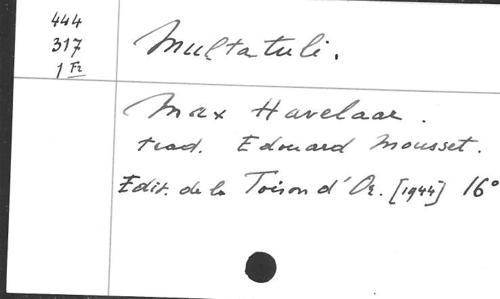 444
317
1 Fr
Multatuli.
Max Havelaar.
trad. Edouard Mousset.
Edit. de la Toison d'Or. [1944] 16°